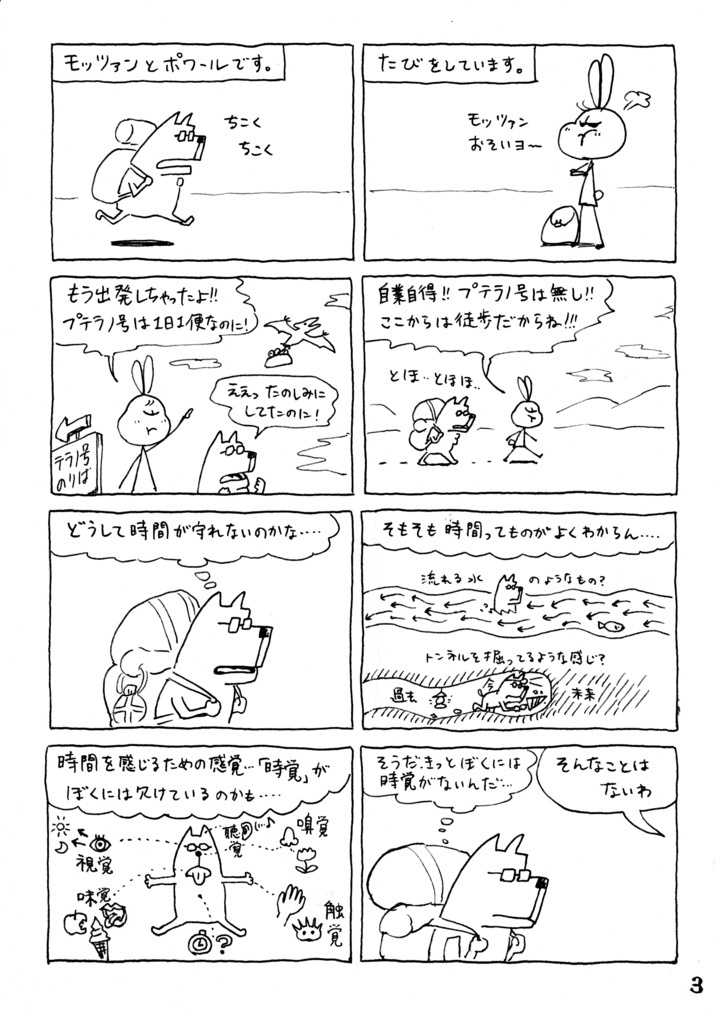 モッツァンとポワールです。
ちこく
ちこく
たびをしています。
モッツァン
おそいヨ〜
もう出発しちゃったよ!!
プテラノ号は1日1便なのに!
ええっ たのしみに
してたのに!
テラノ号
のりば
自業自得!! プテラノ号は無し!!
ここからは徒歩だからね!!!
とほ‥とほほ‥
どうして時間が守れないのかな‥‥
そもそも時間ってものがよくわからん‥‥
流れる水 のようなもの?
トンネルを掘ってるような感じ?
過去 今 未来
時間を感じるための感覚…「時覚」が
ぼくには欠けているのかも‥‥
視覚
聴覚
嗅覚
味覚
触覚
?
そうだ‥きっとぼくには
時覚がないんだ‥‥
そんなことは
ないわ
3